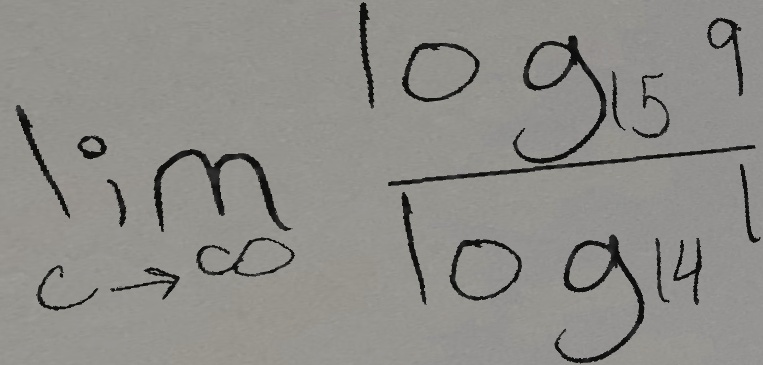 \lim_{c \to \infty} \frac{\log_{15} 9}{\log_{14} 1}